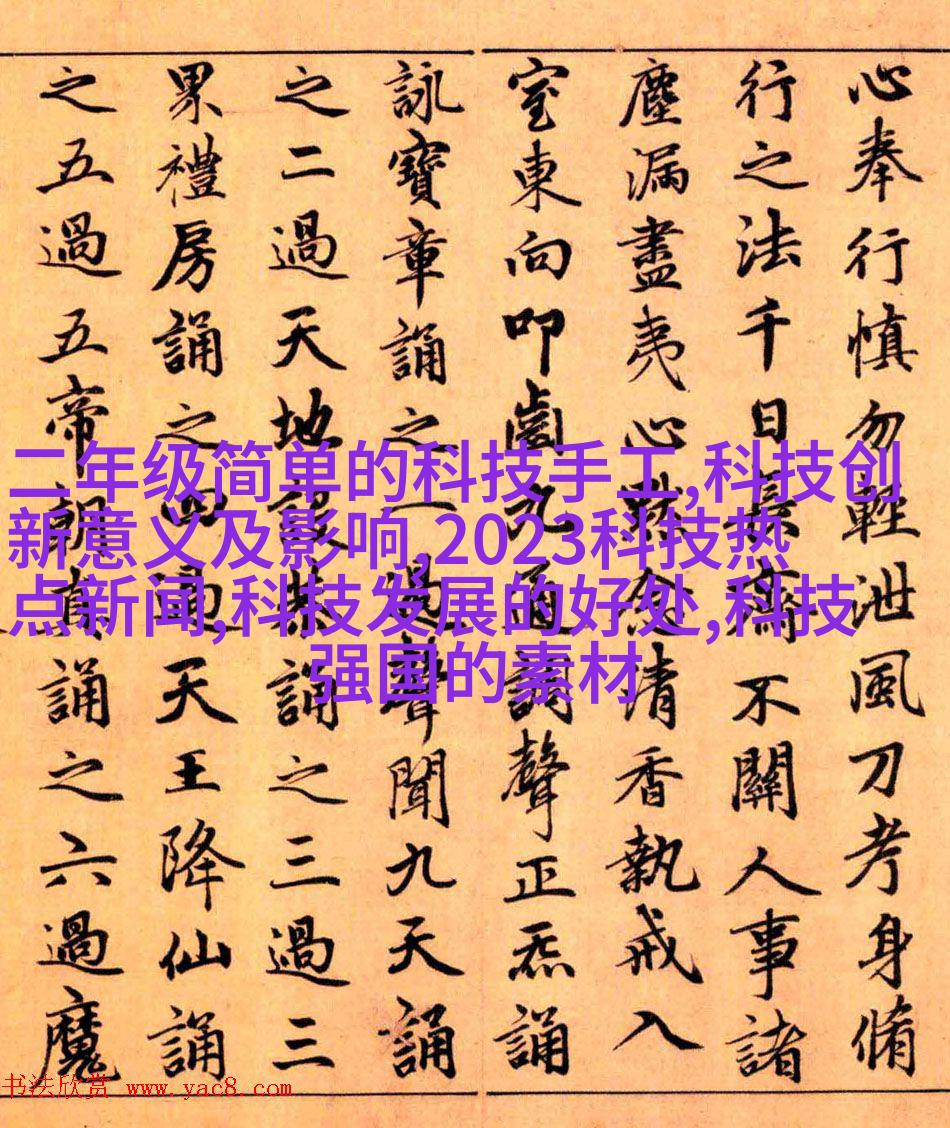 心奉行慎勿輕泄風刀考身脩
行之法千日長齋不關人事諸
塵漏盡夷心默念清香執戒入
室東向叩齒九通誦聲正炁誦
詠寶章誦之一過聲聞九天誦
之二過天地設恭誦之三過三
累禮房誦之四過天王降仙誦
之五過五帝朝真誦之六過魔
二年级简单的科技手工,科技创
新意义及影响,2023科技热
点新闻,科技发展的好处,科技
强国的素材
书法欣赏 www.yac8.com